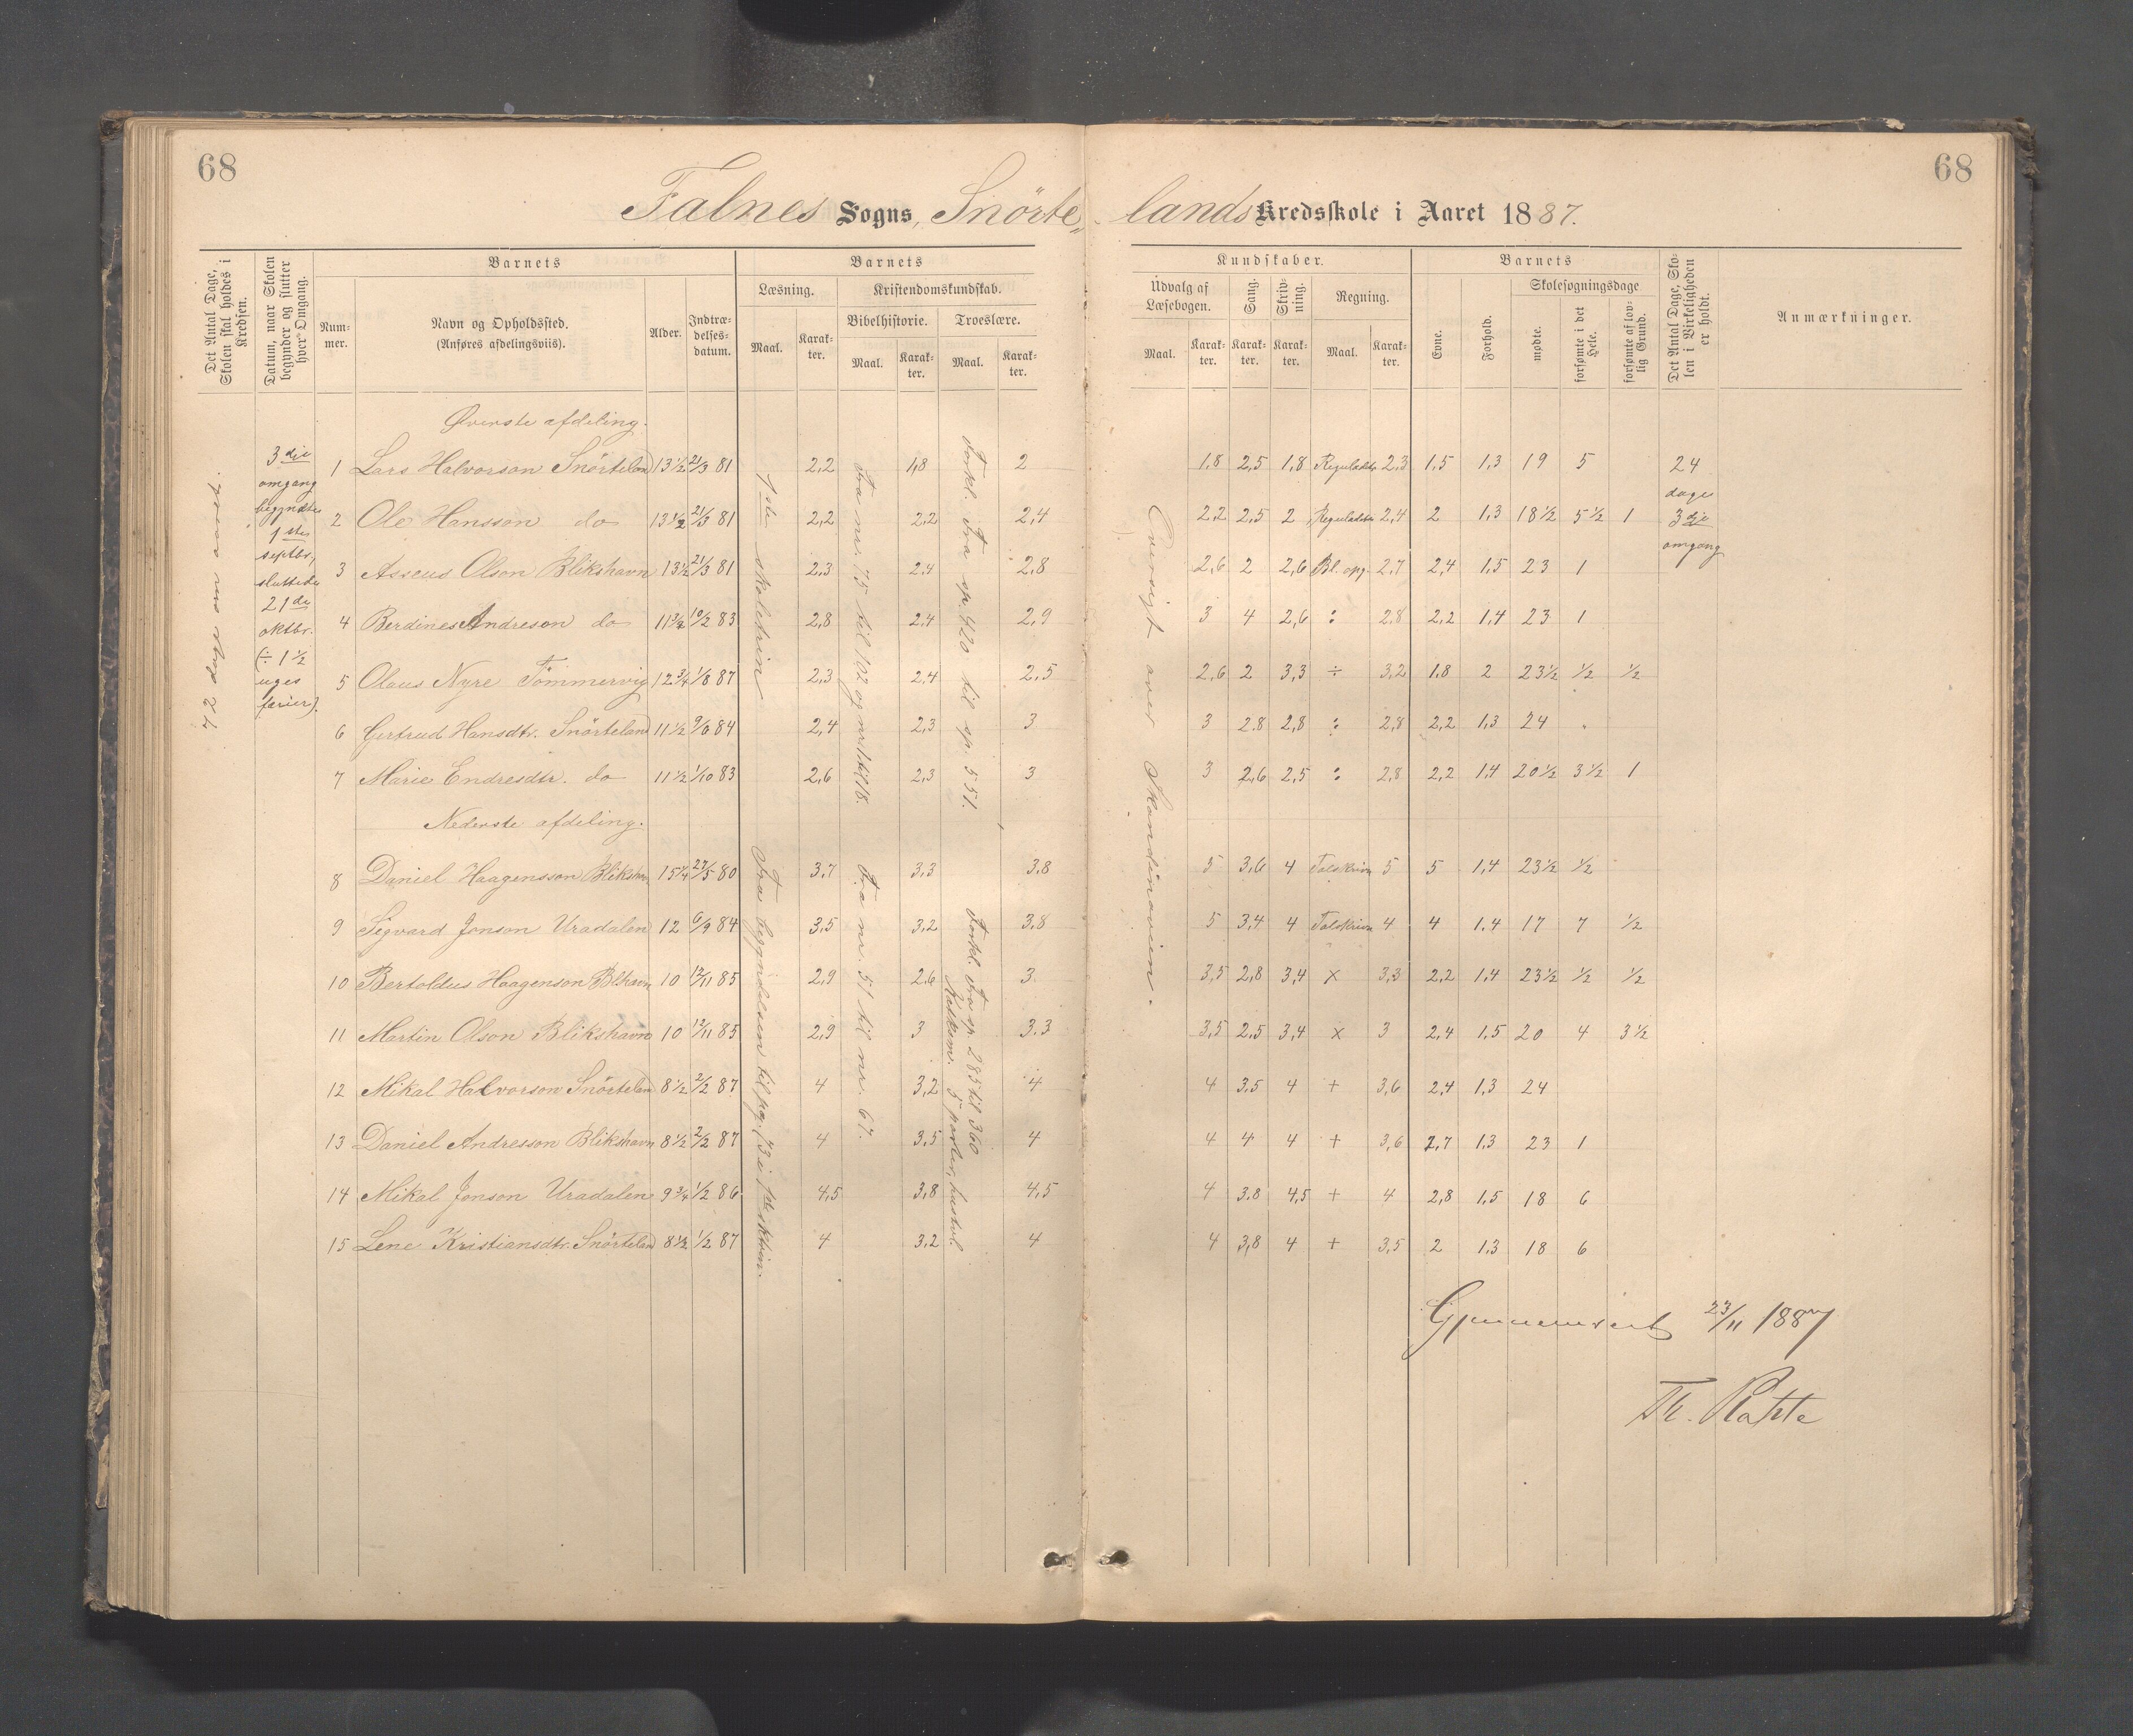 68
68
Falnes Sogns, Snörte„ lands Kredsskole i Aaret 1887.
Det Antal Dage, Skolen skal holdes i Kredsen.
Datum, naar Skolen begynder og slutter hver Omgang.
Barnets
Barnets
Kundskaber.
Barnets
Det Antal Dage, Skolen i Virkeligheden er holdt.
Anmærkninger.
Nummer.
Navn og Opholdssted.
(Anføres afdelingsviis).
Alder.
Indtrædelsesdatum.
Læsning.
Kristendomskundskab.
Bibelhistorie.
Troeslære.
Maal.
Karakter.
Maal.
Karakter.
Maal.
Karakter.
Udvalg af Læsebogen.
Sang.
Skrivning.
Regning.
Maal.
Karakter.
Karakter.
Karakter.
Maal.
Karakter.
Evne.
Forhold.
Skolesøgningsdage
mødte.
forsømte i det Hele.
forsømte af lovlig Grund.
72 dage
3die omgang begyndte 1ste septbr, sluttede 21de oktbr. (÷ 1½ uges ferier).
24 dage 3die omgang
Øverste afdeling.
1 Lars Halvorson Snörteland 13½ 21/3 81 2,2 1,8 2 1,8 2,5 1,8 Reguladetr 2,3 1,5 1,3 19 5
2 Ole Hansson do 13½ 21/3 81 2,2 2,2 2,4 2,2 2,5 2 Reguladetr 2,4 2 1,3 18½ 5½ 1
3 Asseus Olson Blikshavn 13½ 21/3 81 2,3 2,4 2,8 2,6 2 2,6 Bl. opg. 2,7 2,4 1,5 23 1
4 Berdines Andreson do 11¾ 10/2 83 2,8 2,4 2,9 3 4 2,6 : 2,8 2,2 1,4 23 1
5 Olaus Nyre Tömmervig 12¾ 1/8 87 2,3 2,4 2,5 2,6 2 3,3 ÷ 3,2 1,8 2 23½ ½ ½
6 Gertrud Hansdtr. Snörteland 11½ 9/6 84 2,4 2,3 3 3 2,8 2,8 : 2,8 2,2 1,3 24 "
7 Marie Endresdtr. do 11½ 1/10 83 2,6 2,3 3 3 2,6 2,5 : 2,8 2,2 1,4 20½ 3½ 1
Nederste afdeling.
8 Daniel Haagensson Blikshavn 15¼ 27/5 80 3,7 3,3 3,8 5 3,6 4 Talskrivn 5 5 1,4 23½ ½
9 Sigvard Jonson Uradalen 12 6/9 84 3,5 3,2 3,8 5 3,4 4 Talskrivn 4 4 1,4 17 7 ½
10 Bertoldus Haagenson Blkhavn 10 12/11 85 2,9 2,6 3 3,5 2,8 3,4 x 3,3 2,2 1,4 23½ ½ ½
11 Martin Olson Blikshavn 10 12/11 85 2,9 3 3,3 3,5 2,5 3,4 x 3 2,4 1,5 20 4 3½
12 Mikal Halvorson Snörteland 8½ 2/2 87 4 3,2 4 4 3,5 4 + 3,6 2,4 1,3 24
13 Daniel Andresson Blikshavn 8½ 2/2 87 4 3,5 4 4 4 4 + 3,6 2,7 1,3 23 1
14 Mikal Jonson Uradalen 9¾ 1/2 86 4,5 3,8 4,5 4 3,8 4,5 + 4 2,8 1,5 18 6
15 Lene Kristiansdtr. Snörteland 8½ 1/2 87 4 3,2 4 4 3,8 4 + 3,5 2 1,3 18 6
1ste skoletrin
Fra nr. 75 til 102 og nr. 1 til 18.
Forkl. Fra sp. 420 til sp. 551.
Fra begyndelsen til pag. 73 i 1ste sktrin.
Fra nr. 51 til nr. 67.
Forkl. Fra sp. 285 til 360
Katekism. 5 parter, hustavl.
Oversigt over Skandinavien.
Gjennemseet 23/11 1887